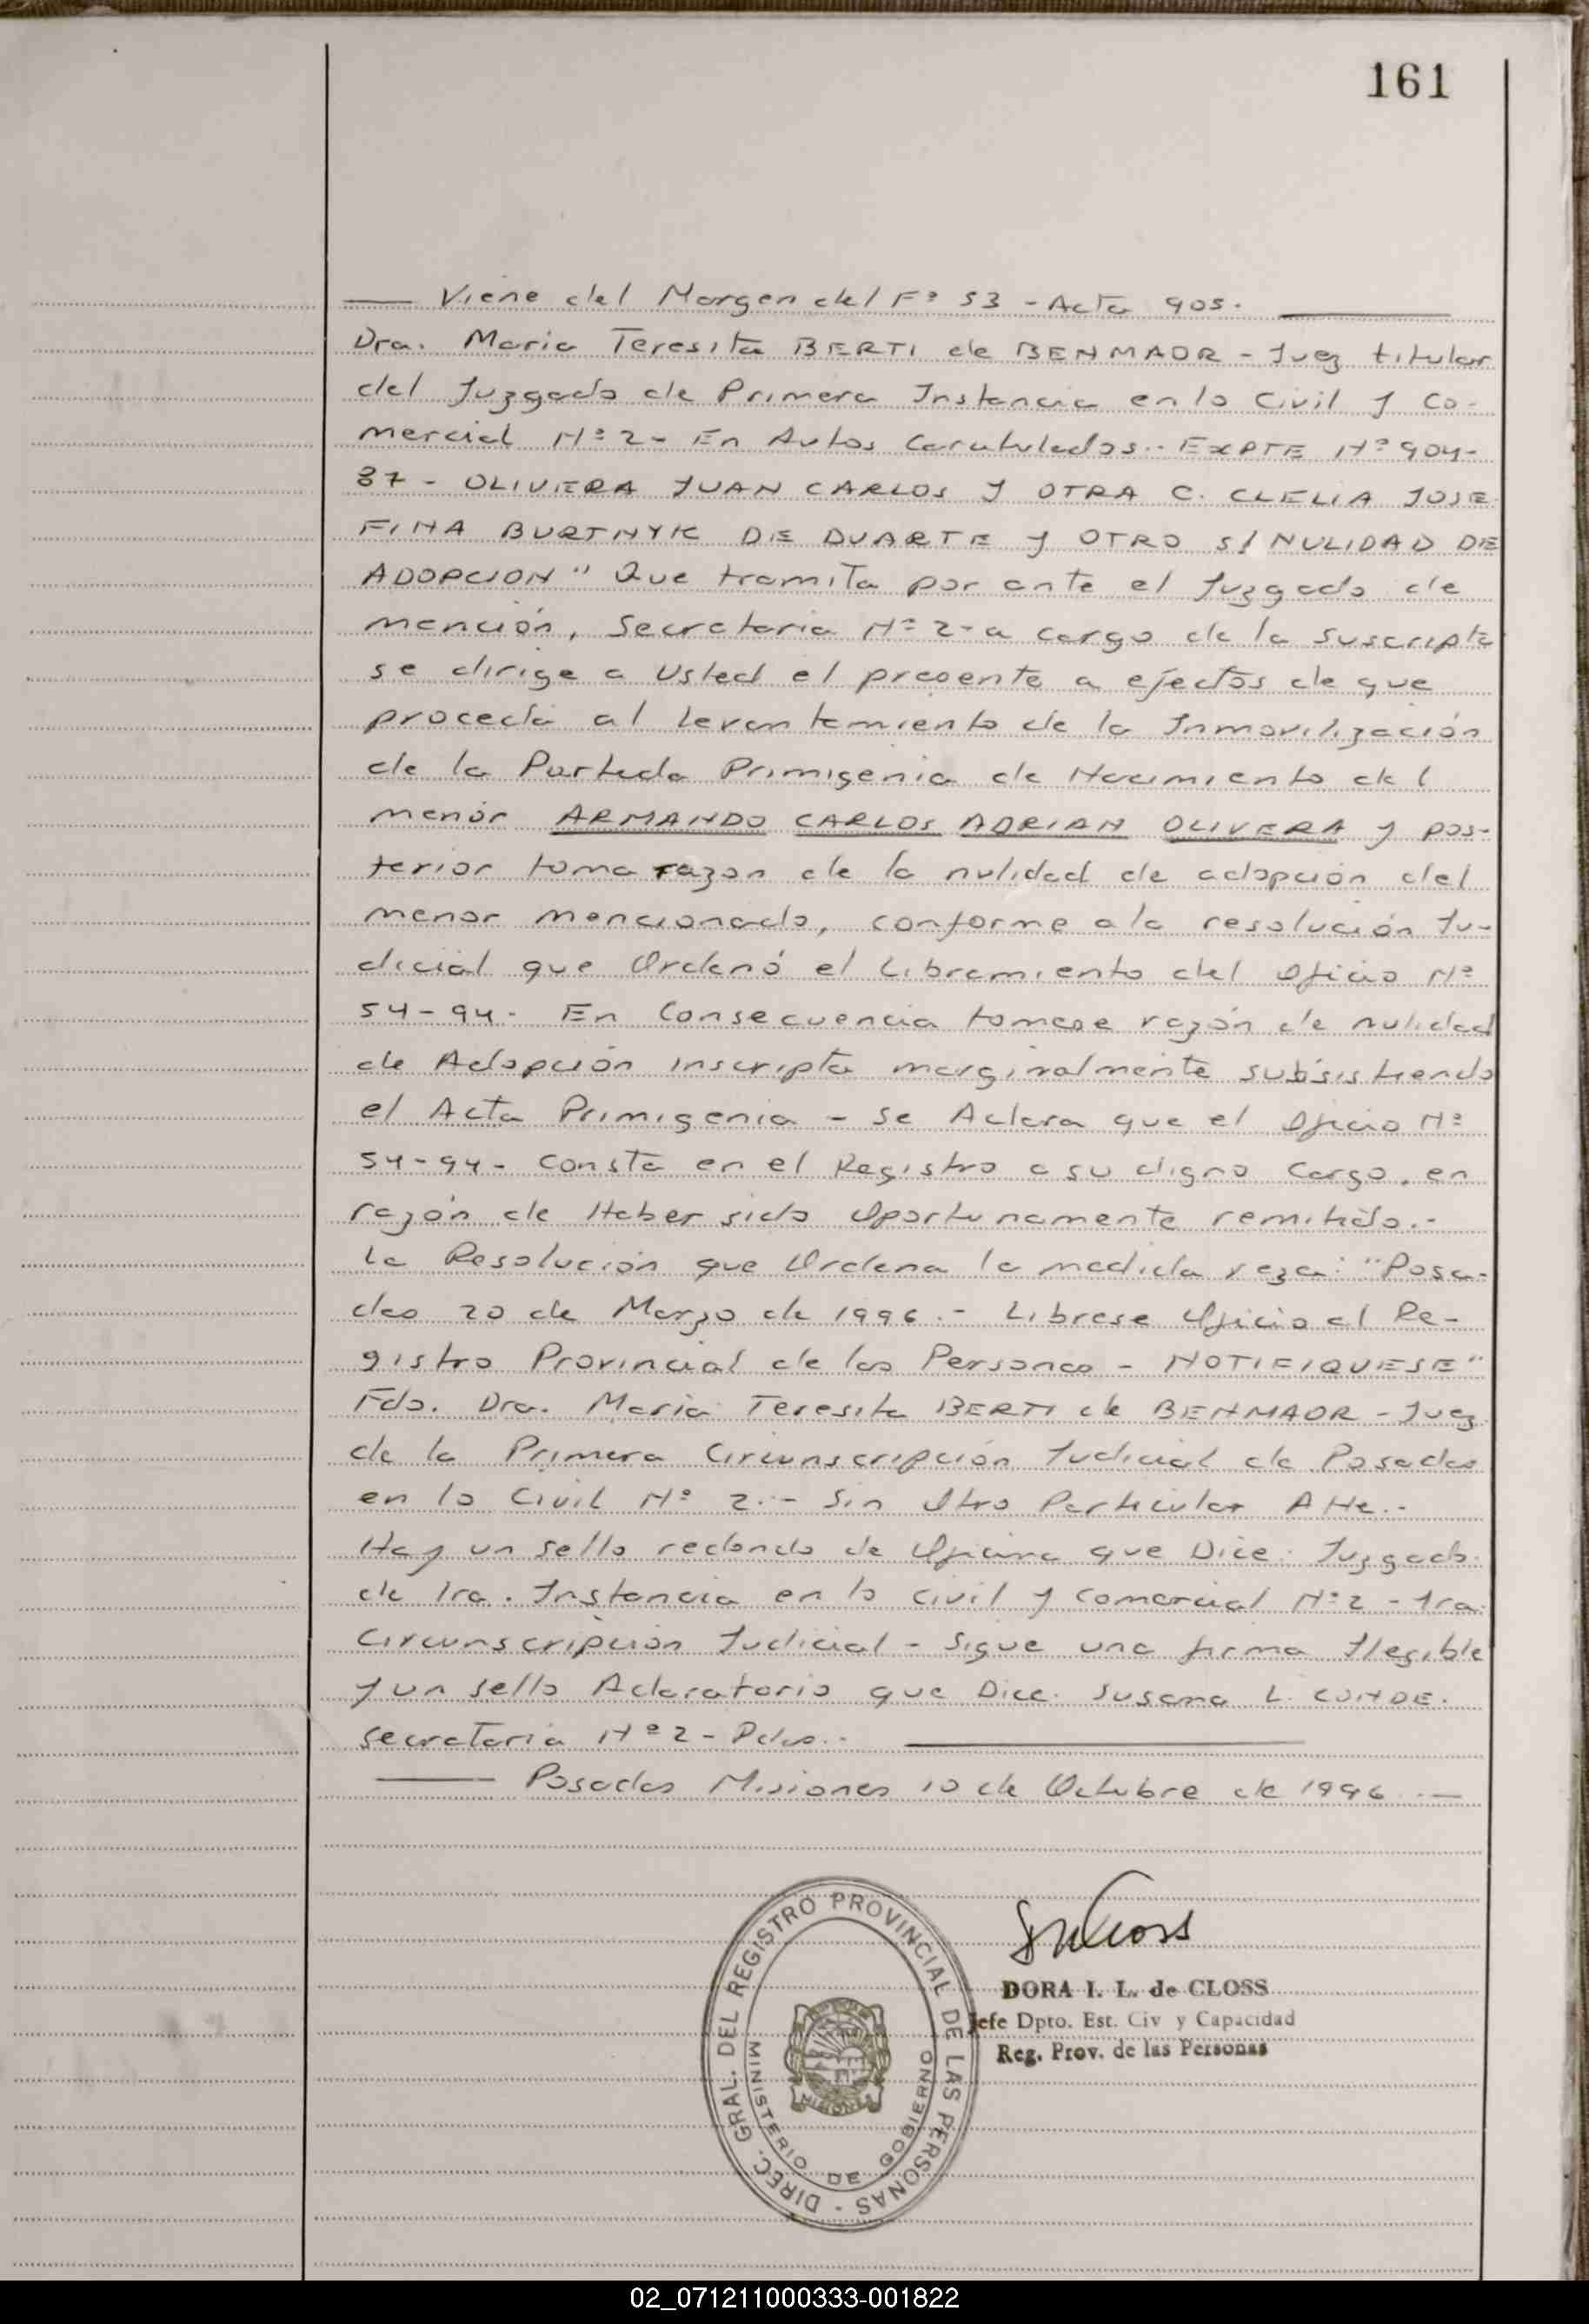 161
Viene del Margen del Fº 53 - Acta 905.
Dra. Maria Teresita BERTI de BENMAOR - Juez titular
del Juzgado de Primera Instancia en lo Civil y Co-
mercial Nº 2 - En Autos Caratulados.. EXPTE Nº 904-
87 - OLIVIERA JUAN CARLOS Y OTRA C. CLELIA JOSE
FINA BURTNYK DE DUARTE y OTRO S/ NULIDAD DE
ADOPCION" Que tramita por ante el Juzgado de
mención, Secretaria Nº 2 - a cargo de la Suscripta
se dirige a Usted el presente a efectos de que
proceda al Levantamiento de la Inmovilización
de la Partida Primigenia de Nacimiento del
menór ARMANDO CARLOS ADRIAN OLIVERA y pos-
terior toma razon de la nulidad de adopción del
menor mencionado, conforme a la resolución Ju-
dicial que Ordenó el Libramiento del Oficio Nº
54-94. En Consecuencia tomese razón de nulidad
de Adopción inscripta marginalmente subsistiendo
el Acta Primigenia - Se Aclara que el Oficio Nº
54-94 - Consta en el Registro a su digno Cargo, en
razón de Haber sido Oportunamente remitido.-
La Resolución que Ordena la medida reza: "Posa-
das 20 de Marzo de 1996.- Librese Oficio al Re-
gistro Provincial de las Personas - NOTIFIQUESE"
Fdo. Dra. Maria Teresita BERTI de BENMAOR - Juez
de la Primera Circunscripción Judicial de Posadas
en lo Civil Nº 2.- Sin Otro Particular Atte.-
Hay un sello redondo de Oficina que Dice: Juzgado.
de 1ra. Instancia en lo Civil y Comercial Nº 2 - 1ra.
Circunscripción Judicial - Sigue una firma Ilegible
y un sello Aclaratorio que Dice. Susana L. CONDE.
Secretaria Nº 2 - Pdas..
Posadas Misiones 10 de Octubre de 1996
DIREC. GRAL. DEL REGISTRO PROVINCIAL DE LAS PERSONAS -
MINISTERIO DE GOBIERNO
MISIONES
DORA I. L. de CLOSS
Jefe Dpto. Est. Civ y Capacidad
Reg. Prov. de las Personas
02_071211000333-001822